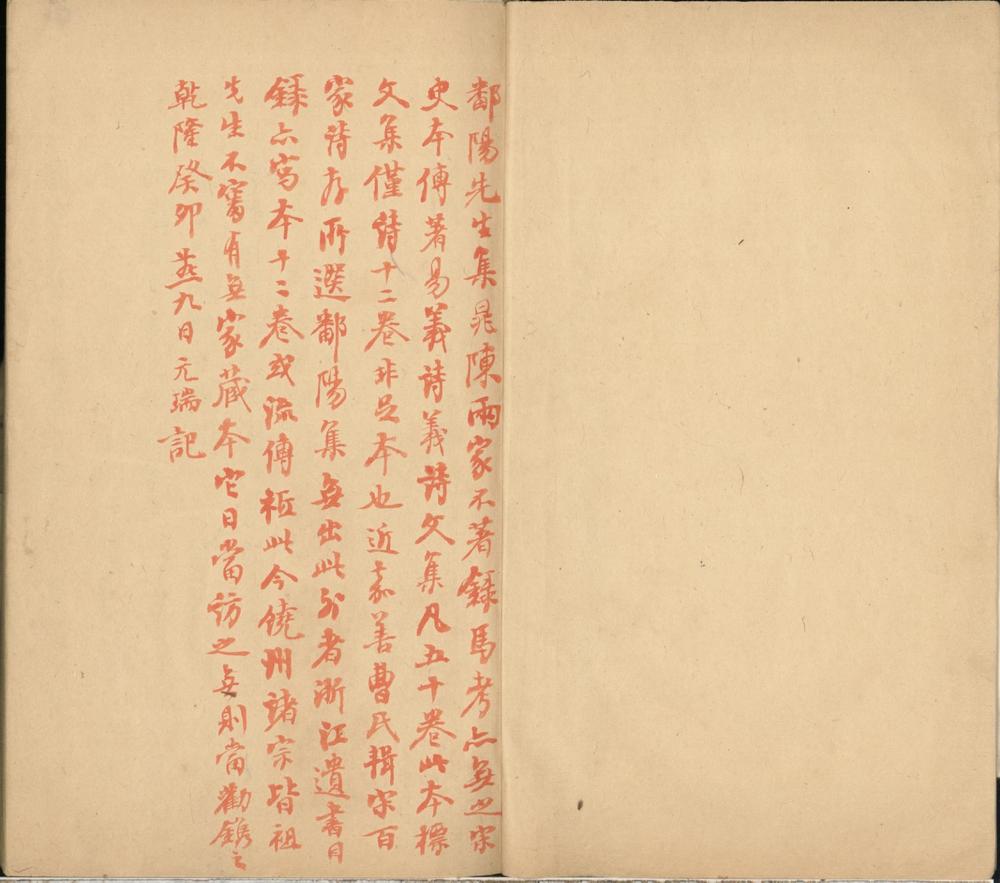 鄱陽先生集晁陳兩家不著錄馬考亦無之宋
史本傳著易義詩義詩文集凡五十卷此本標
文集僅詩十二卷非足本也近嘉善曹氏輯宋百
家詩存所選鄱陽集無出此外者浙江遺書目
錄亦寫本十二卷或流傳祗此今饒州諸宗皆祖
先生不審有無家藏本它日當訪之無則當勸鐫之
乾隆癸卯燕九日元瑞記